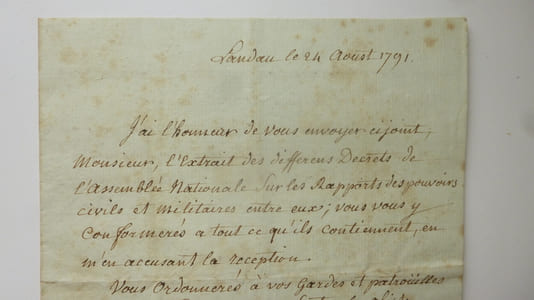 Landau le 24 Aoust 1791.
J'ai l'honneur de vous envoyer cijoint,
Monsieur, l'Extrait des differens Decrets de
l'Assemblée Nationale sur les Rapports des pouvoirs
civils et militaires entre eux; vous vous y
conformerés a tout ce qu'ils contiennent, en
m'en accusant la reception.
Vous Ordonnerés à vos Gardes et patroüilles